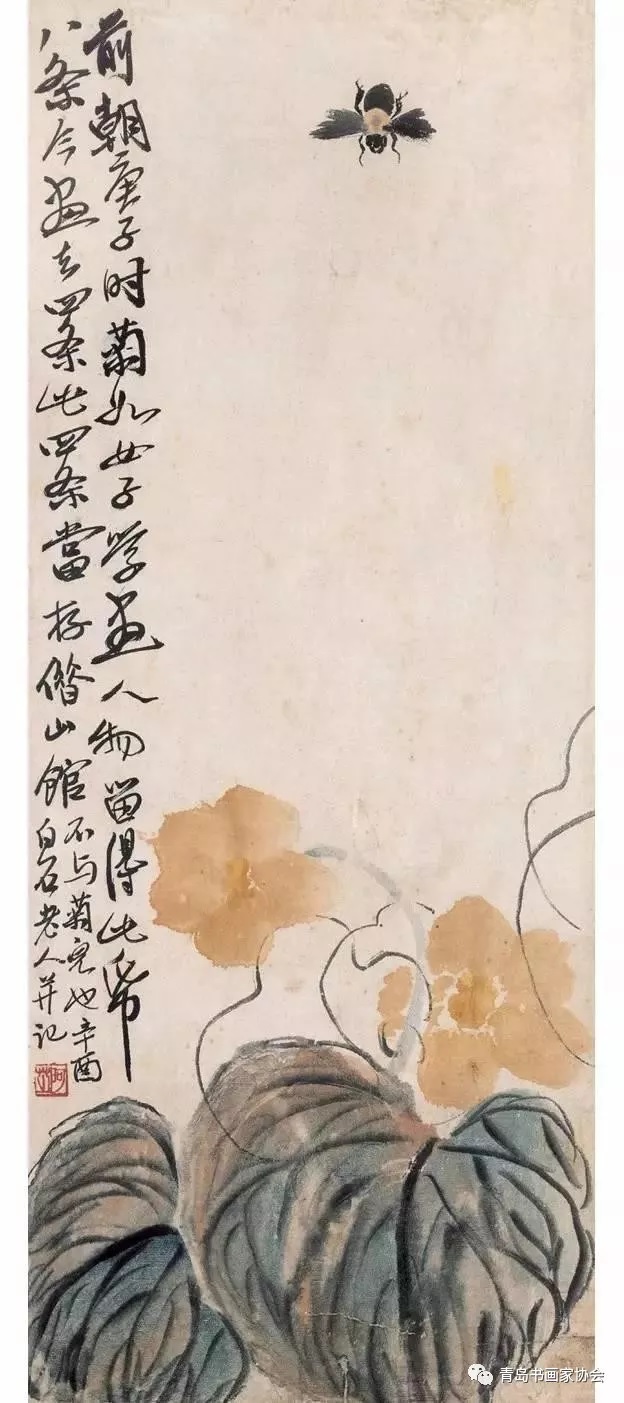 前朝庚子时菊如女子学画人物留得此帋
八条今画去四条此四条當存借山館
不与菊兒也辛酉
白石老人并记
青岛书画家协会